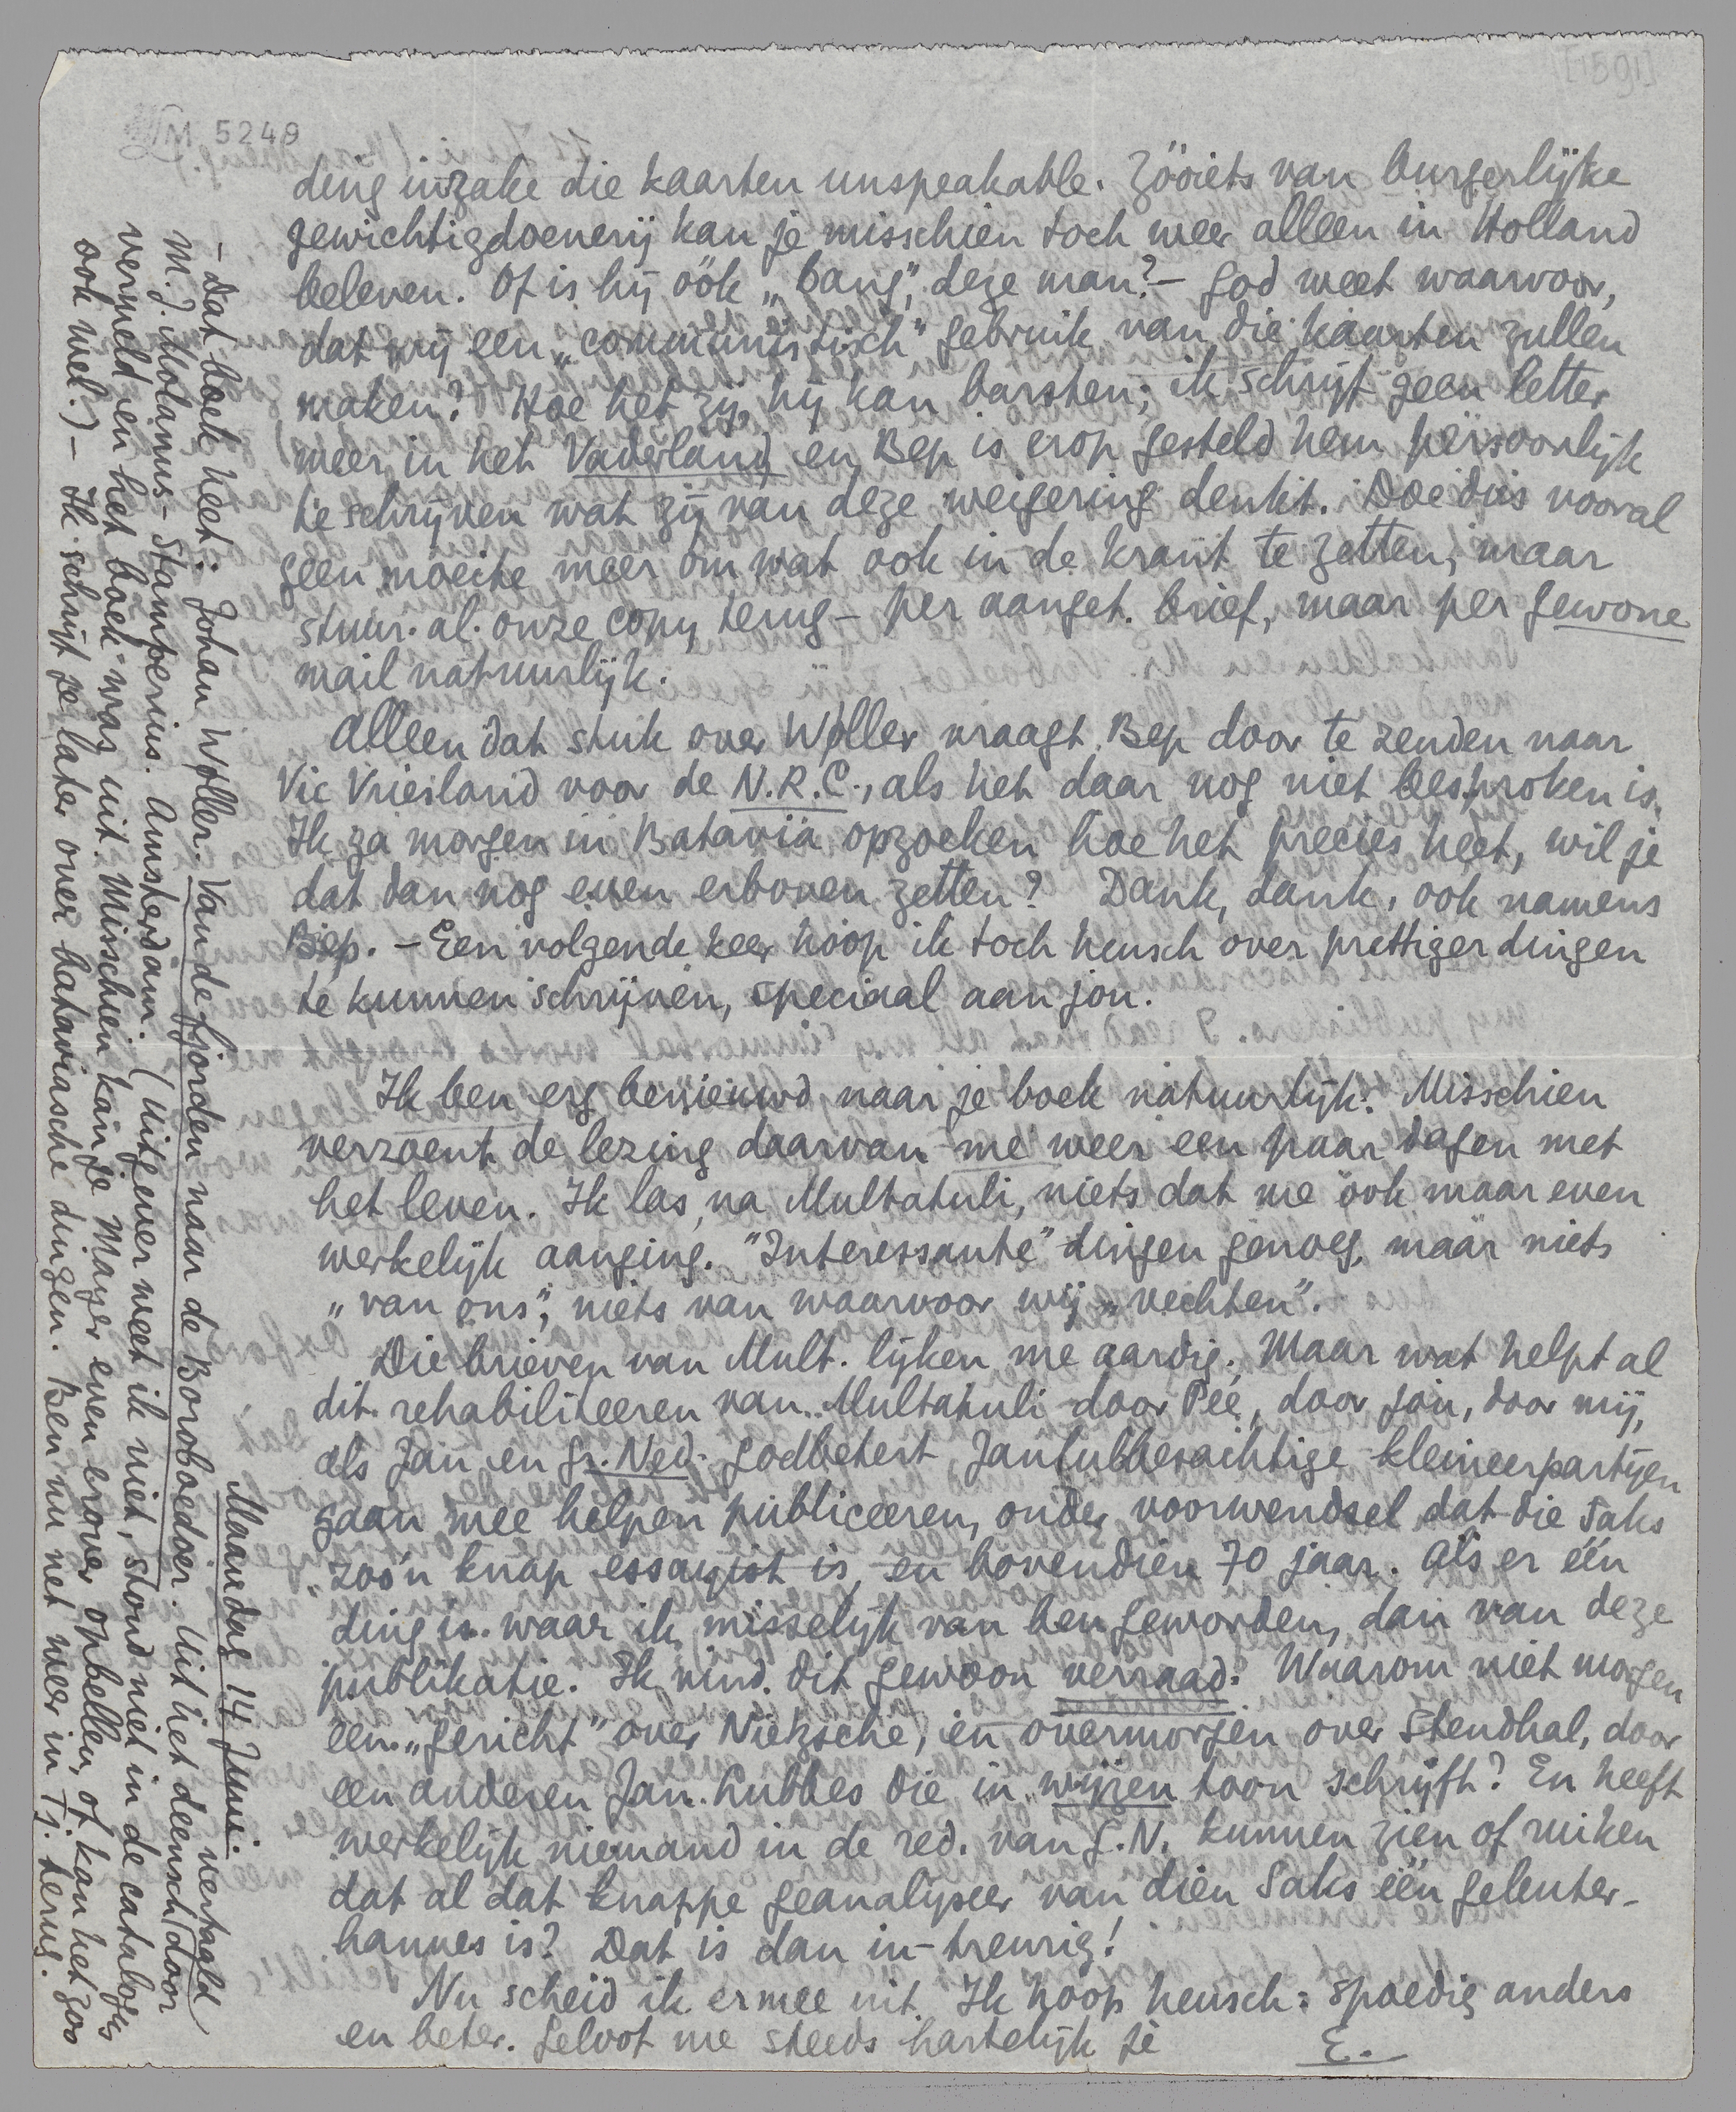 [1591]
LM 5249
ding inzake die kaarten unspeakable. Zóóiets van burgerlijke
gewichtigdoenerij kan je misschien toch weer alleen in Holland
beleven. Of is hij óók „bang", deze man? – God weet waarvoor,
dat wij een „communistisch" gebruik van die kaarten zullen
maken? Hoe het zij, hij kan barsten; ik schrijf geen letter
meer in het Vaderland en Bep is erop gesteld hem persoonlijk
te schrijven wat zij van deze weigering denkt. Doe dus vooral
geen moeite meer om wat ook in de krant te zetten, maar
stuur al onze copy terug – per aanget. brief, maar per gewone
mail natuurlijk.
Alleen dat stuk over Wøller vraagt Bep door te zenden naar
Vic Vriesland voor de N.R.C., als het daar nog niet besproken is.
Ik ga morgen in Batavia opzoeken hoe het precies heet, wil je
dat dan nog even erboven zetten? Dank, dank, ook namens
Bep. – Een volgende keer hoop ik toch heusch over prettiger dingen
te kunnen schrijven, speciaal aan jou.
Ik ben erg benieuwd naar je boek natuurlijk. Misschien
verzoent de lezing daarvan me weer een paar dagen met
het leven. Ik las, na Multatuli, niets dat me ook maar even
werkelijk aanging. "Interessante" dingen genoeg, maar niets
„van ons", niets van waarvoor wij „vechten".
Die brieven van Mult. lijken me aardig. Maar wat helpt al
dit rehabiliteeren van Multatuli door Pée, door jou, door mij,
als Jan en Gr. Ned. godbetert Janlubbesachtige kleineerpartijen
gaan mee helpen publiceeren, onder voorwendsel dat die Saks
zoo'n knap essayist is, en bovendien 70 jaar. Als er één
ding is waar ik misselijk van ben geworden, dan van deze
publikatie. Ik vind dit gewoon verraad. Waarom niet morgen
een „gericht" over Nietzsche, en overmorgen over Stendhal, door
een anderen Jan Lubbes die in wijzen toon schrijft? En heeft
werkelijk niemand in de red. van G.N. kunnen zien of ruiken
dat al dat knappe geanalyseer van dien Saks één geleuter-
hannes is? Dat is dan in-treurig!
Nu scheid ik ermee uit. Ik hoop heusch: spoedig anders
en beter. Geloof me steeds hartelijk je
E.
Maandag 14 Juni.
– Dat boek heet: Johan Wøller. Van de fjorden naar de Boroboedoer. Uit het deensch vertaald door
M.J. Molanus-Stamperius. Amsterdam. (Uitgever weet ik niet, stond niet in de catalogus
vermeld en het boek was uit. Misschien kan je Mayer even erover opbellen, of kan het zoo
ook wel.) – Ik schrijf je later over bataviasche dingen. Ben nu net weer in Tj. terug.